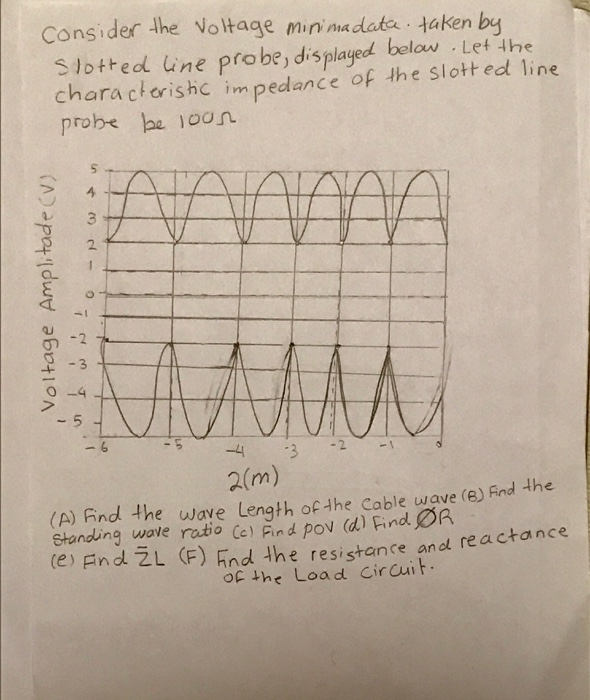 Consider the Voltage minima data. taken by
Slotted line probe, displayed below. Let the
characteristic impedance of the slotted line
probe be 100Ω
Voltage Amplitade (V)
5
4
3
2
1
0
-1
-2
-3
-4
-5
-6 -5 -4 -3 -2 -1 0
2(m)
(A) Find the wave Length of the Cable wave (B) Find the
Standing wave ratio (c) Find pov (d) Find ØR
(e) Find Z̄L (F) Find the resistance and reactance
of the Load circuit.